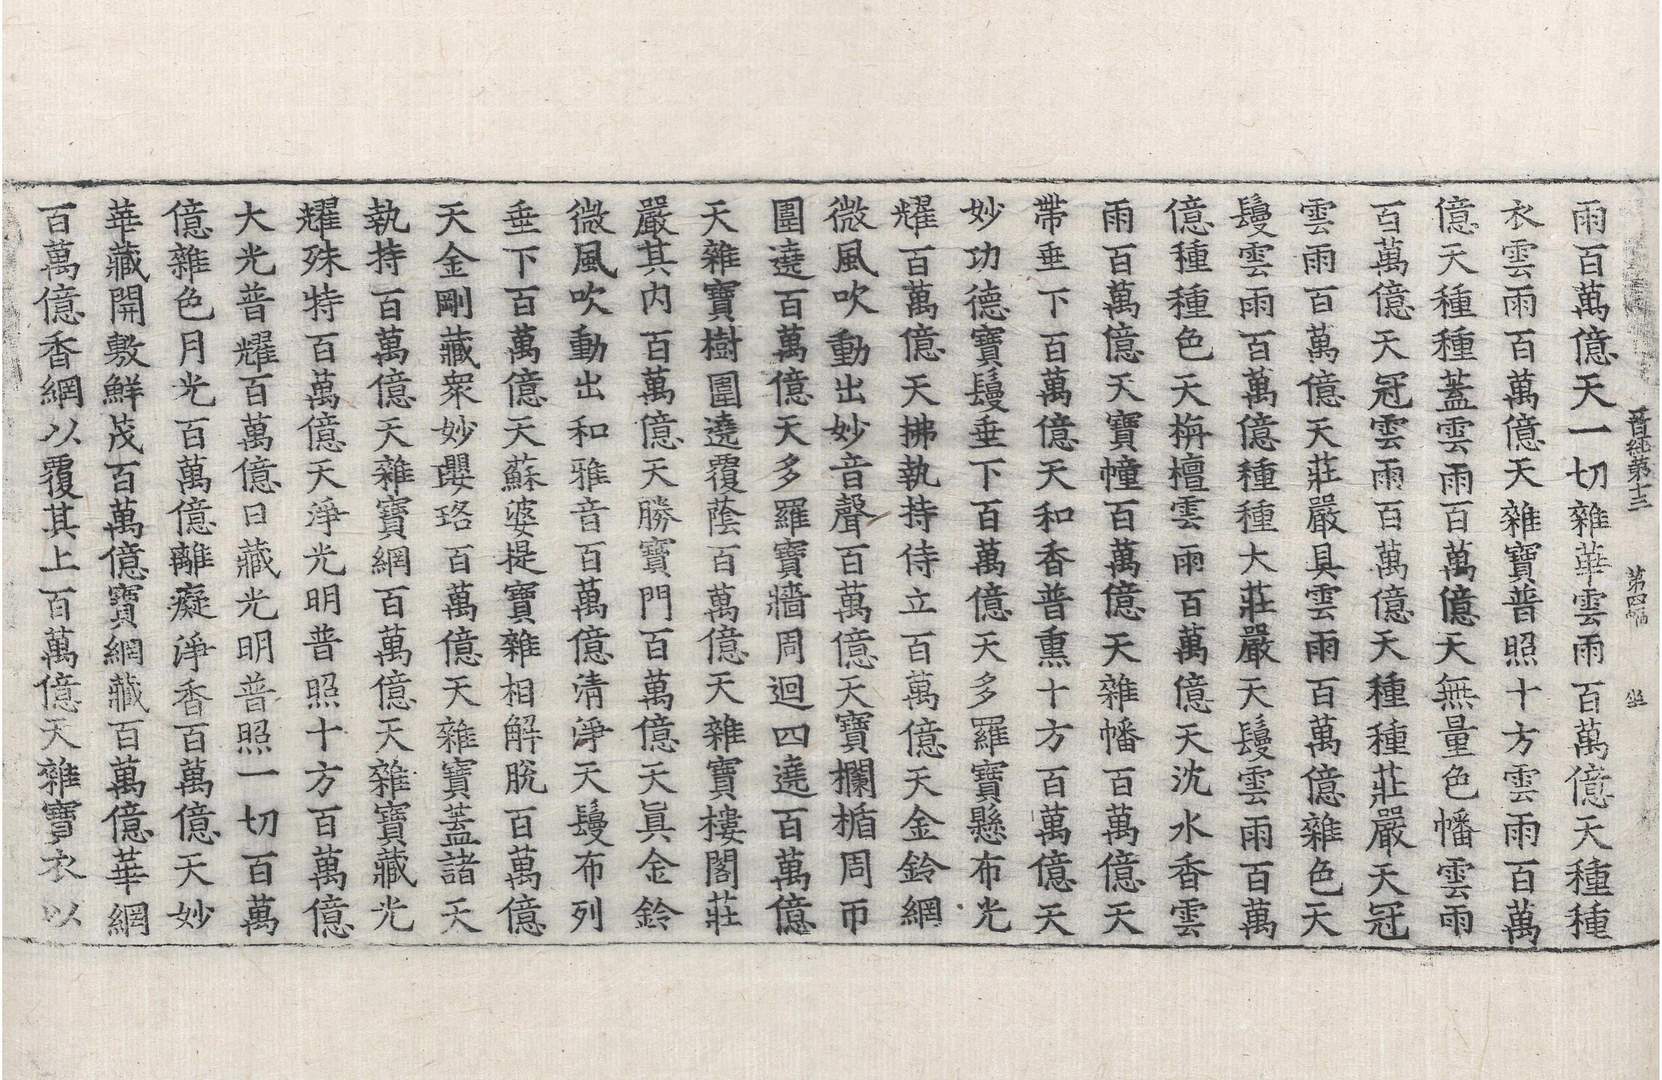 晋經第十三 第四幅 坐
雨百萬億天一切雜華雲雨百萬億天種種
衣雲雨百萬億天雜寶普照十方雲雨百萬
億天種種蓋雲雨百萬億天無量色幡雲雨
百萬億天冠雲雨百萬億天種種莊嚴天冠
雲雨百萬億天莊嚴具雲雨百萬億雜色天
鬘雲雨百萬億種種大莊嚴天鬘雲雨百萬
億種種色天栴檀雲雨百萬億天沈水香雲
雨百萬億天寶幢百萬億天雜幡百萬億天
帶垂下百萬億天和香普熏十方百萬億天
妙功德寶鬘垂下百萬億天多羅寶懸布光
耀百萬億天拂執持侍立百萬億天金鈴網
微風吹動出妙音聲百萬億天寶欄楯周帀
圍遶百萬億天多羅寶牆周迴四遶百萬億
天雜寶樹圍遶覆蔭百萬億天雜寶樓閣莊
嚴其内百萬億天勝寶門百萬億天眞金鈴
微風吹動出和雅音百萬億清淨天鬘布列
垂下百萬億天蘇婆提寶雜相解脫百萬億
天金剛藏衆妙瓔珞百萬億天雜寶蓋諸天
執持百萬億天雜寶網百萬億天雜寶藏光
耀殊特百萬億天淨光明普照十方百萬億
大光普耀百萬億日藏光明普照一切百萬
億雜色月光百萬億離癡淨香百萬億天妙
華藏開敷鮮茂百萬億寶網藏百萬億華網
百萬億香網以覆其上百萬億天雜寶衣以